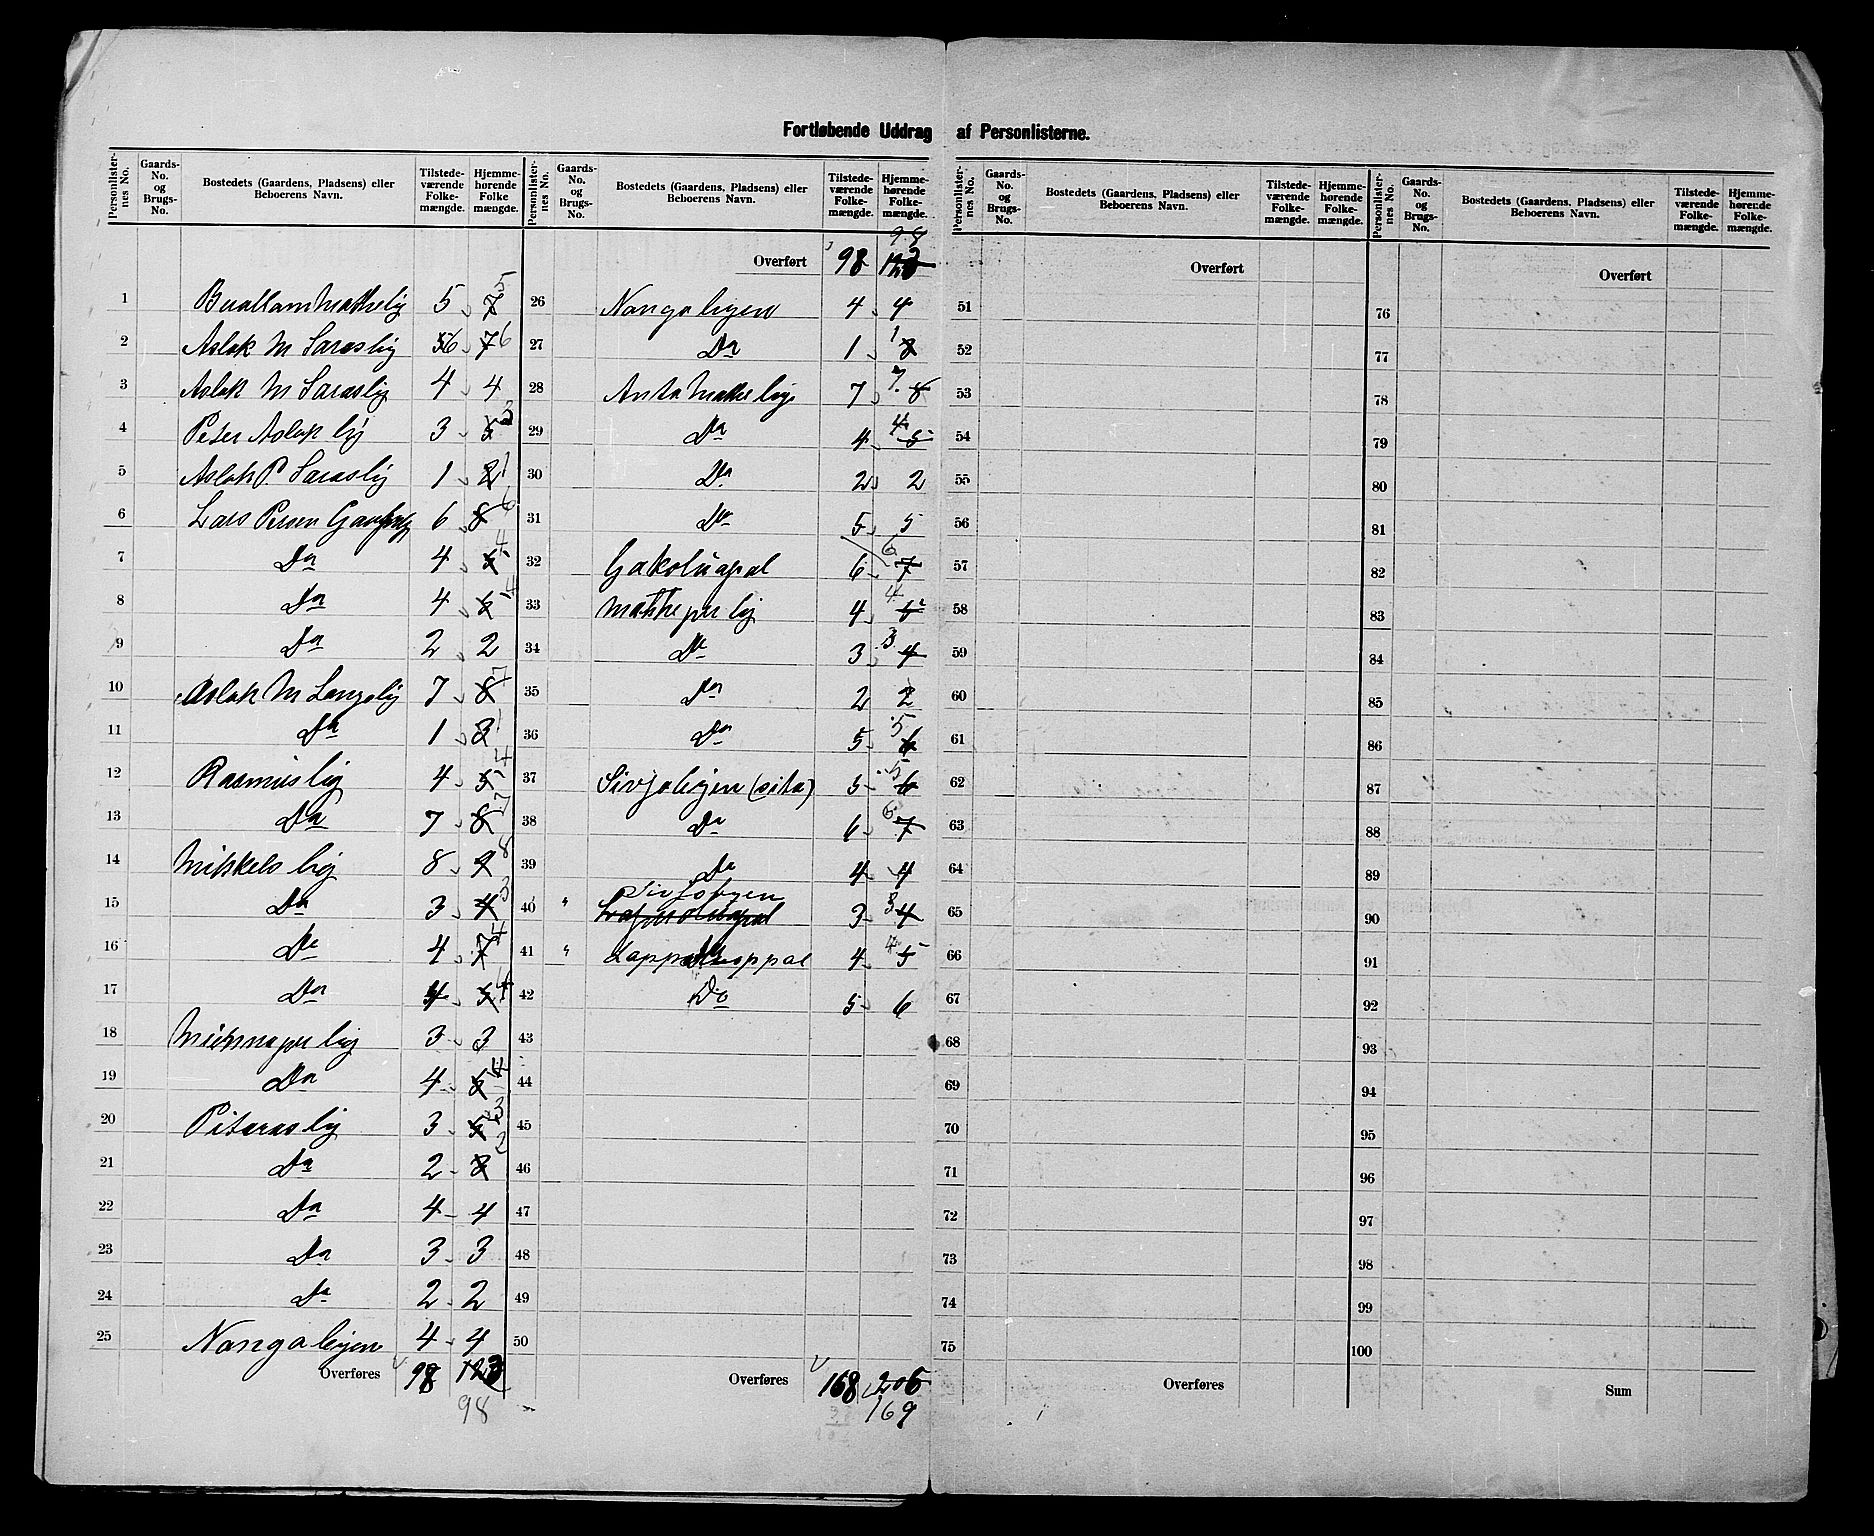 Fortløbende Uddrag af Personlisterne.
Personlister-nes No. Gaards-No. og Brugs-No. Bostedets (Gaardens, Pladsens) eller Beboerens Navn. Tilstede-værende Folke-mængde. Hjemme-hørende Folke mængde.
Personlister-nes No. Gaards-No. og Brugs-No. Bostedets (Gaardens, Pladsens) eller Beboerens Navn. Tilstede-værende Folke-mængde. Hjemme-hørende Folke-mængde.
Personlister-nes No. Gaards-No. og Brugs-No. Bostedets (Gaardens, Pladsens) eller Beboerens Navn. Tilstede-værende Folke-mængde. Hjemme-hørende Folke-mængde.
Personlister-nes No. Gaards-No. og Brugs-No. Bostedets (Gaardens, Pladsens) eller Beboerens Navn. Tilstede-værende Folke-mængde. Hjemme-hørende Folke-mængde.
1 5 7 5
2 Aslak M Sarasbÿ 6 7 6
3 Aslak M Sarasbÿ 4 4
4 Peter Aslak bÿ 3 5 3
5 Aslak P. Sarasbÿ 1 2 1
6 Lars Persen 6 8 6
7 Do 4 5 4
8 Do 4 5 4
9 Do 2 2
10 Aslak M 7 8 7
11 Do 1 2
12 Rasmus bÿ 4 5 4
13 Do 7 8 7
14 Mikkels bÿ 8 9 8
15 Do 3 4 3
16 Do 4 7 4
17 Do 4 5 4
18 3 3
19 Do 4 5 4
20 Pitaras bÿ 3 5 3
21 Do 2 3 2
22 Do 4 4
23 Do 3 3
24 Do 2 2
25 Nangabyen 4 4
Overføres 98 123
98
Overført 98 123 98
26 Nangabyen 4 4
27 Do 1 2 1
28 Anta Mathe bÿ 7 8 7
29 Do 4 5 4
30 Do 2 2
31 Do 5 5
32 Gakoluapal 6 7 6
33 Mathe per bÿ 4 5 4
34 Do 3 4 3
35 Do 2 2
36 Do 5 6 5
37 Sivjobyen (sita) 5 6 5
38 Do 6 7 6
39 Do 4 4
40 " Sivjobyen 3 4 3
41 " 4 5 4
42 Do 5 6
43
44
45
46
47
48
49
50
Overføres 168 206
169
Overført
51
52
53
54
55
56
57
58
59
60
61
62
63
64
65
66
67
68
69
70
71
72
73
74
75
Overføres
Overført
76
77
78
79
80
81
82
83
84
85
86
87
88
89
90
91
92
93
94
95
96
97
98
99
100
Sum